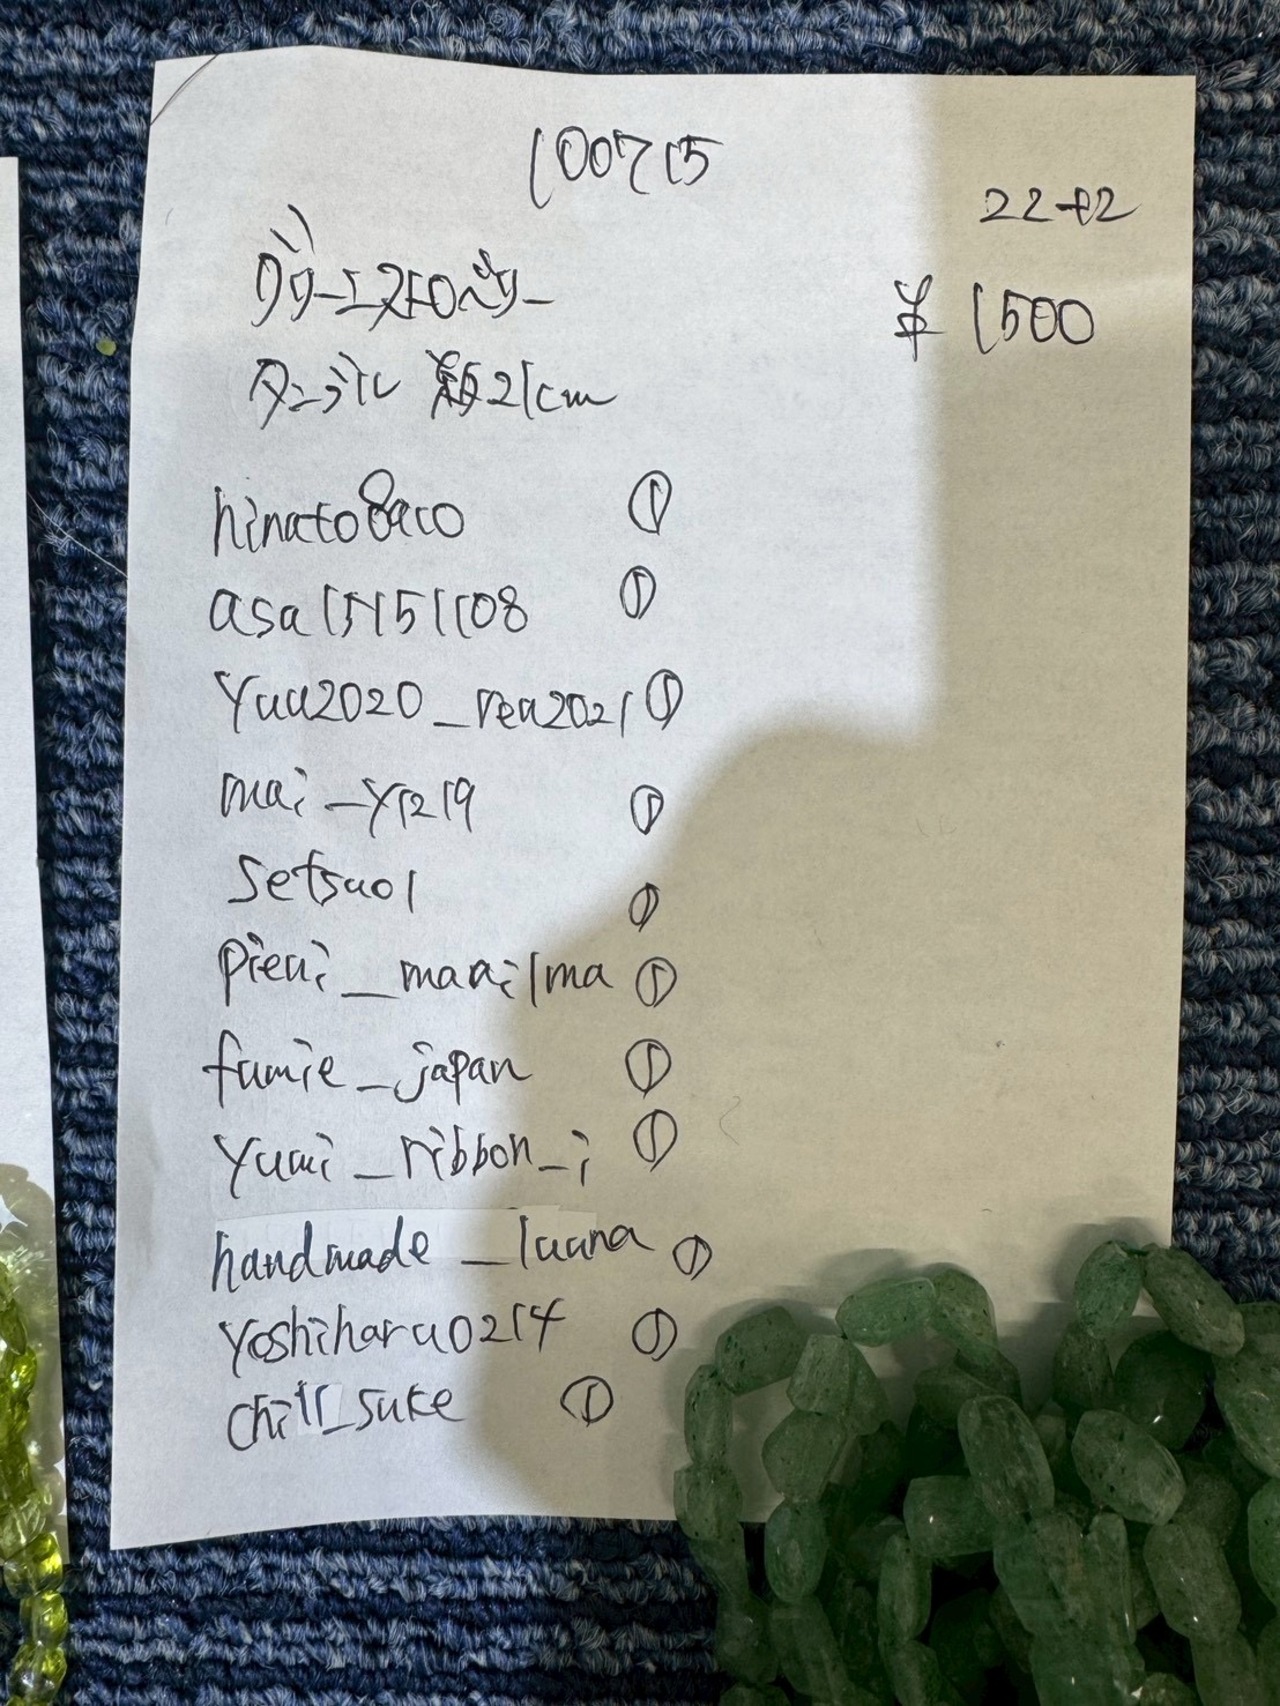 100715
22-42
グリーンストロベリー
¥1500
タンブル 類21cm
hinato8aco ①
asa15151108 ①
yuu2020_rea2021 ①
mai_y1219 ①
setsuo1 ①
pieni_maailma ①
fumie_japan ①
yumi_ribbon_i ①
handmade_luana ①
yoshiharu0214 ①
chill_suke ①